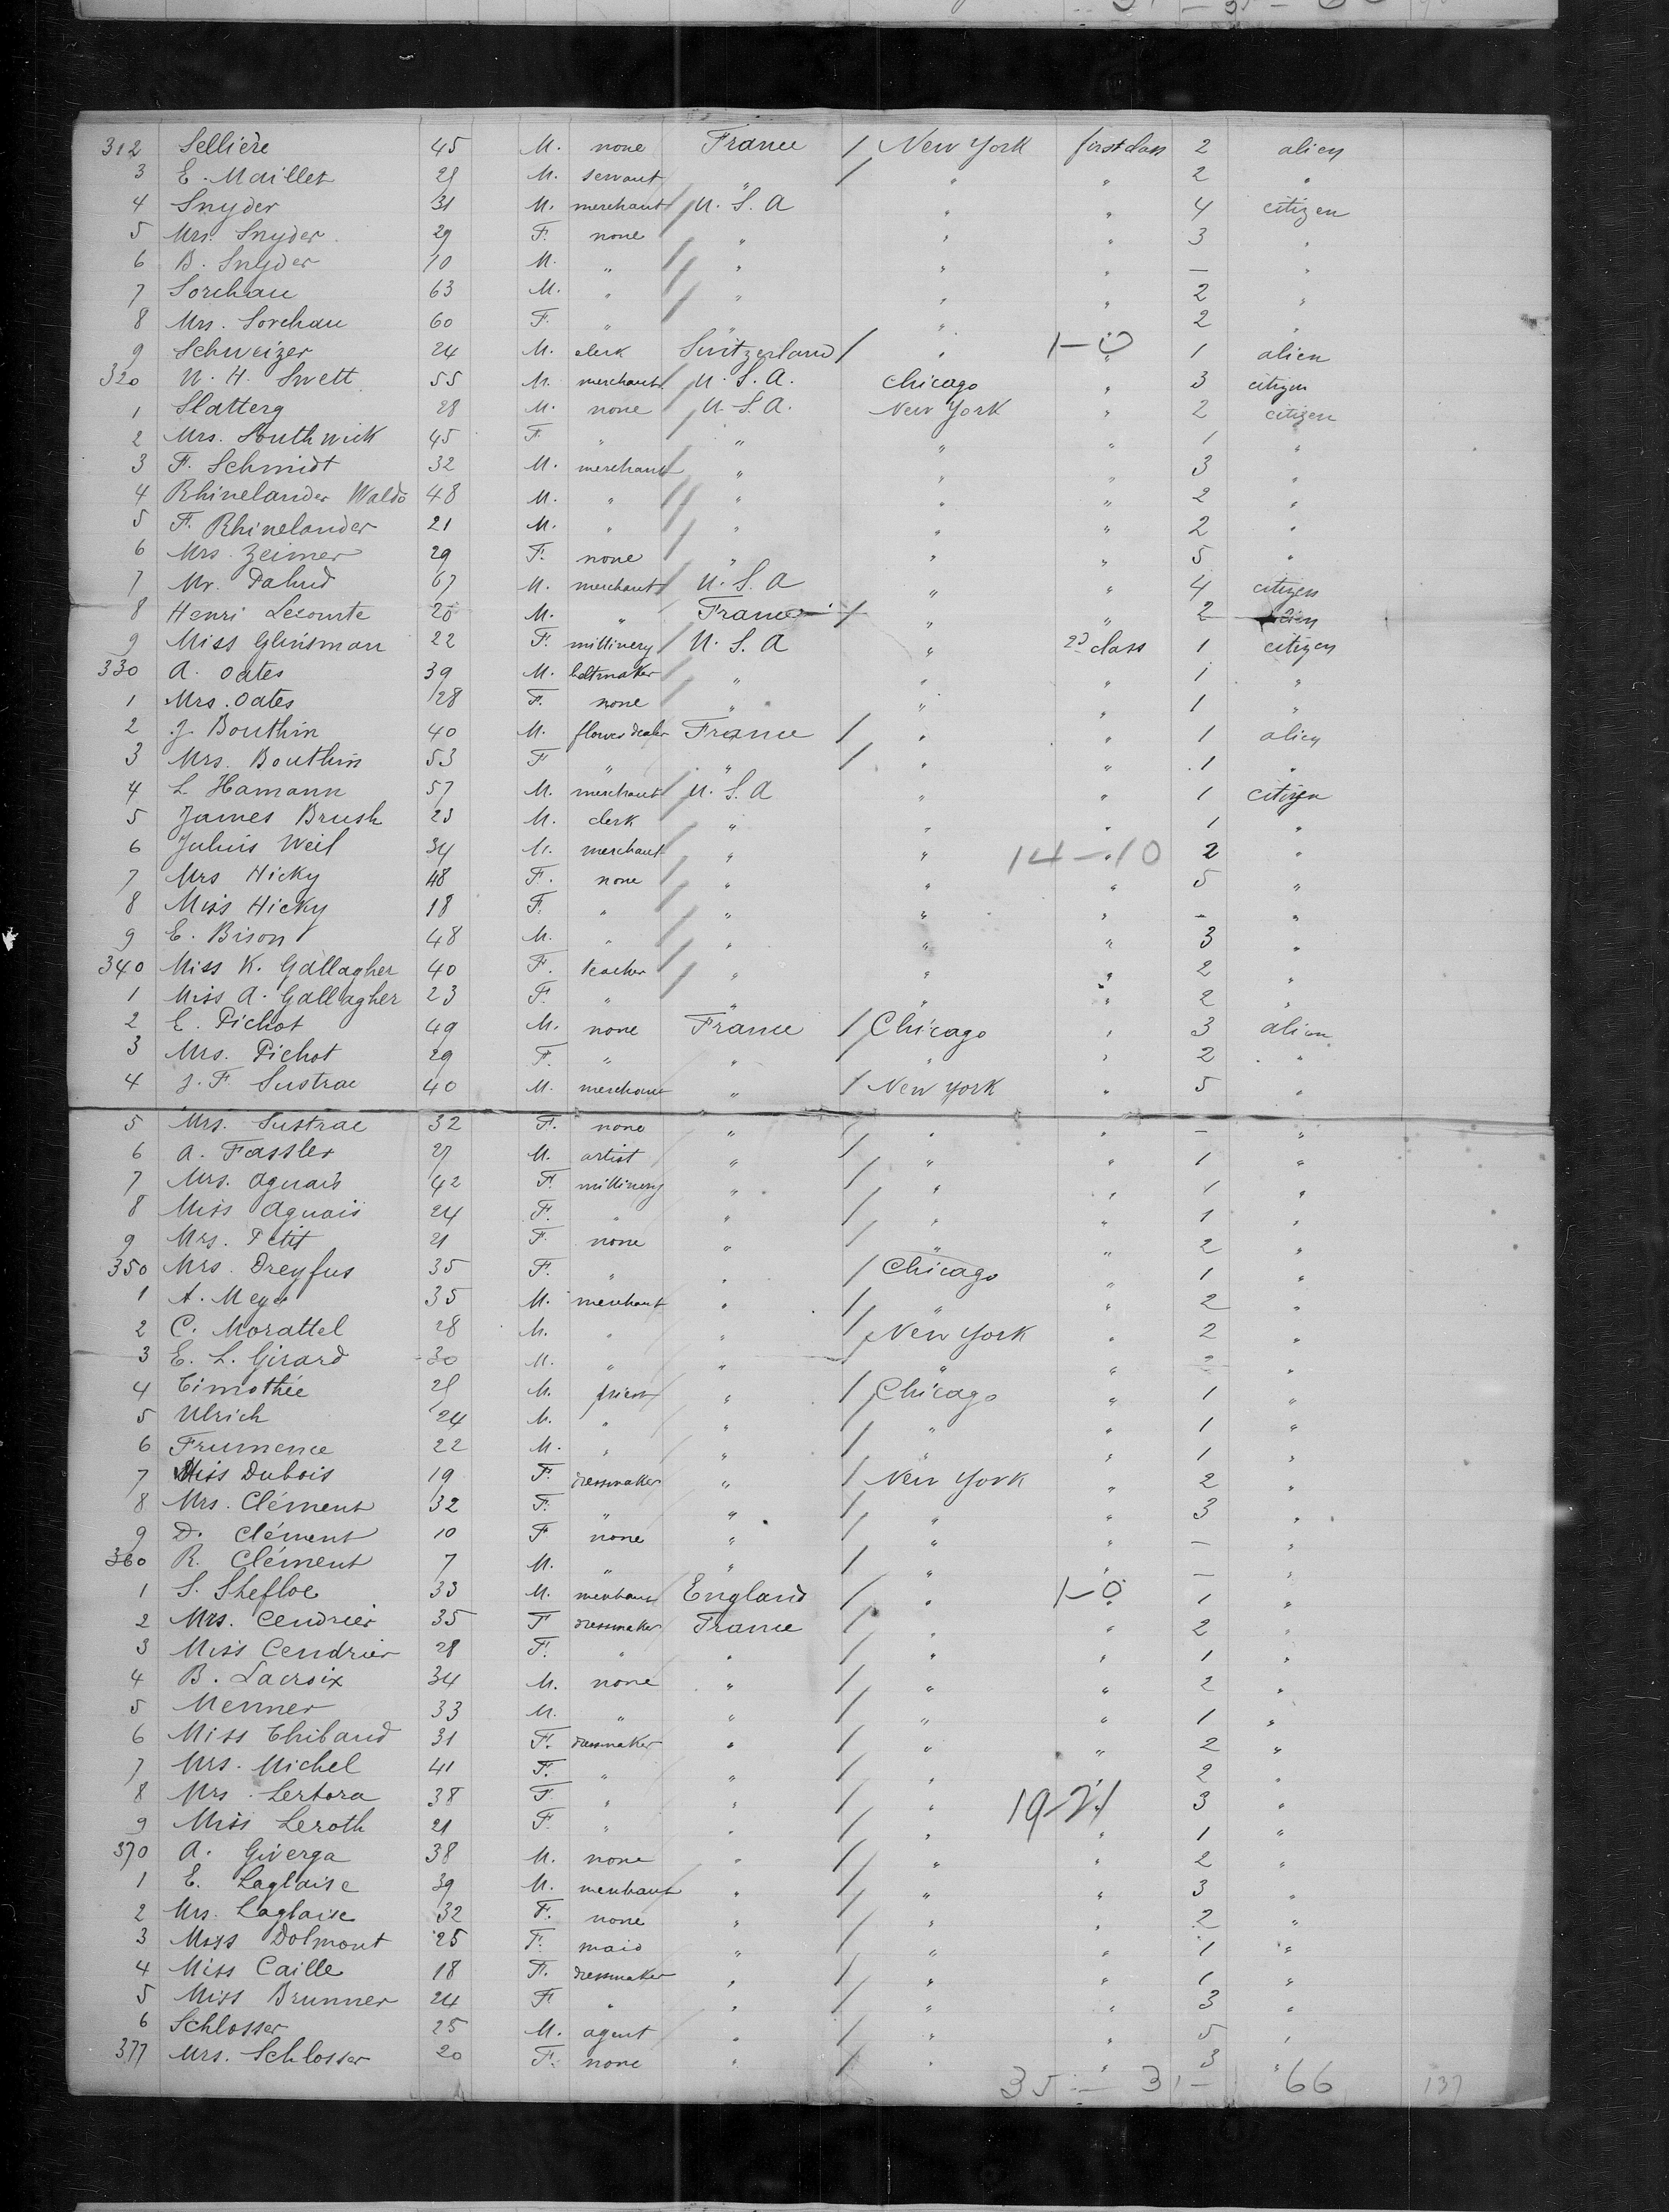 312 Selliere 45 M. none France / New York first class 2 alien
3 E. Maillet M. servant " / " " 2 "
4 Snyder 31 M. merchant / U. S. A " " 4 citizen
5 Mrs. Snyder 29 F. none / " " " 3 "
6 B. Snyder 10 M. " / " " " — "
7 Sorchau 63 M. " / " " " 2 "
8 Mrs. Sorchau 60 F. " " " 2 "
9 Schweizer 24 M. clerk Switzerland / " 1-0 " 1 alien
320 H. Swett 55 M. merchant / U. S. A. Chicago " 3 citizen
1 Slatterg 28 M. none / U. S. A. New York " 2 citizen
2 Mrs. Southwick 45 F " " " " 1 "
3 F. Schmidt 32 M. merchant " " " 3 "
4 Rhinelander Waldo 48 M. " / " " " 2 "
5 F. Rhinelander 21 M. " / " " " 2 "
6 Mrs. Zeimer 29 F. none " " " 5 "
7 Mr. Dalud 67 M. merchant / U. S. A " " 4 citizen
8 Henri Lecomte 20 M. " France / " " 2 alien
9 Miss Glinsman 22 F. millinery / U. S. A " 2d class 1 citizen
330 A. Oates 39 M. beltmaker " " " 1 "
1 Mrs. Oates 28 F. none " " " 1 "
2 J. Bouthin 40 M. flower dealer France / " " 1 alien
3 Mrs. Bouthin 53 F " " / " " 1 "
4 L. Hamann 57 M. merchant / U. S. A " " 1 citizen
5 James Brush 23 M. clerk / " " " 1 "
6 Julius Weil 34 M. merchant / " " 14-10 " 2 "
7 Mrs Hicky 48 F. none / " " " 5 "
8 Miss Hicky 18 F. " / " " " — "
9 E. Bison 48 M. " / " " " 3 "
340 Miss K. Gallagher 40 F. teacher / " " " 2 "
1 Miss A. Gallagher 23 F. " " " " 2 "
2 E. Pichot 49 M. none France / Chicago " 3 alien
3 Mrs. Pichot 29 F. " " " " 2 "
4 J. F. Sustrac 40 M. merchant " / New York " 5 "
5 Mrs. Sustrac 32 F. none " / " " — "
6 A. Fassler 27 M. artist " / " " 1 "
7 Mrs. Aguais 42 F. millinery " / " " 1 "
8 Miss Aguais 24 F. " " / " " 1 "
9 Mrs. Petit 21 F. none " / " " 2 "
350 Mrs. Dreyfus 35 F. " " / Chicago " 1 "
1 A. Meyer 35 M. merchant " / " " 2 "
2 C. Morattel 28 M. " " / New York " 2 "
3 E. L. Girard 30 M. " " " " "
4 Timothée M. priest " / Chicago " 1 "
5 Ulrich 24 M. " " / " " 1 "
6 Frumence 22 M. " " / " " 1 "
7 Miss Dubois 19 F. dressmaker " / New York " 2 "
8 Mrs. Clément 32 F. " " / " " 3 "
9 D. Clément 10 F none " / " " — "
360 R. Clément 7 M. " " / " " — "
1 S. Shefloe 33 M. merchant England / " 1-0 " 1 "
2 Mrs. Cendrier 35 F dressmaker France / " " 2 "
3 Miss Cendrier 28 F. " " / " " 1 "
4 B. Lacroix 34 M. none " / " " 2 "
5 Menner 33 M. " " / " " 1 "
6 Miss Thibaud 31 F. dressmaker " / " " 2 "
7 Mrs. Michel 41 F. " " / " " 2 "
8 Mrs. Lertora 38 F " " / " 19-21 3 "
9 Miss Leroth 21 F. " " / " " 1 "
370 A. Giverga 38 M. none " / " " 2 "
1 E. Laglaise 39 M. merchant " / " " 3 "
2 Mrs. Laglaise 32 F. none " / " " 2 "
3 Miss Dolmont 25 F. maid " / " " 1 "
4 Miss Caille 18 F. dressmaker " / " " 1 "
5 Miss Brunner 24 F " " / " " 3 "
6 Schlosser 25 M. agent " / " " 5 "
377 Mrs. Schlosser 20 F. none " / " " 3 "
35 — 31 — 66 137